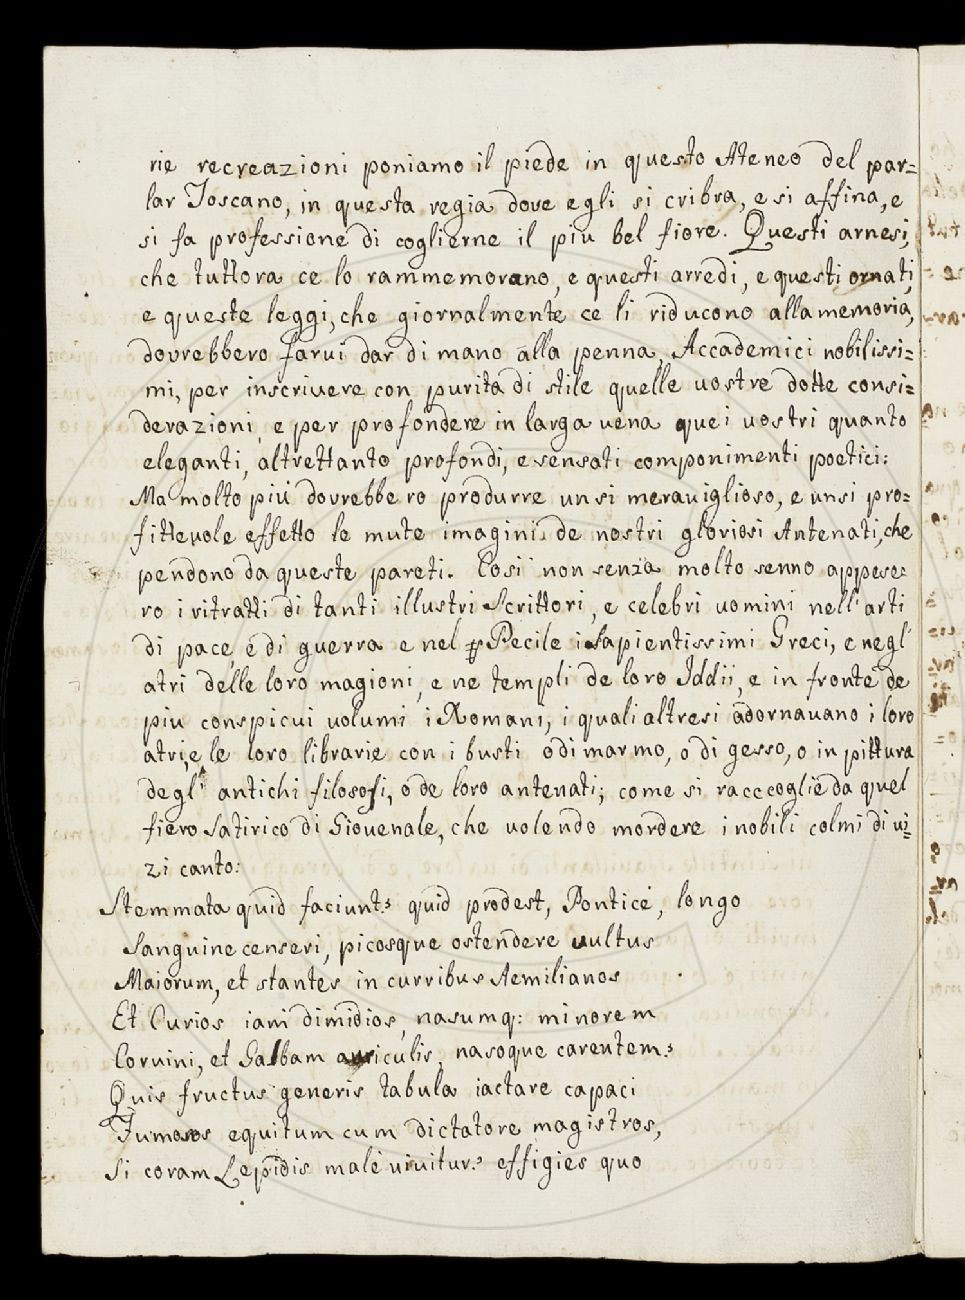 rie recreazioni poniamo il piede in questo Ateneo del par=
lar Toscano, in questa regia dove egli si cribra, e si affina, e
si fa professione di coglierne il piu bel fiore. Questi arnesi,
che tuttora ce lo rammemorano, e questi arredi, e questi ornati,
e queste leggi, che giornalmente ce li riducono alla memoria,
dovrebbero farui dar di mano alla penna, Accademici nobilissi=
mi, per inscrivere con purità di stile quelle uostre dotte consi=
derazioni, e per profondere in larga uena quei uostri quanto
eleganti, altrettanto profondi, e sensati componimenti poetici:
Ma molto più dovrebbero produrre un si merauiglioso, e un si pro=
fitteuole effetto le mute imagini de nostri gloriosi Antenati, che
pendono da queste pareti. Cosi non senza molto senno appese=
ro i ritratti di tanti illustri Scrittori, e celebri uomini nell'arti
di pace, e di guerra e nel Pecile i Sapientissimi Greci, e negl'
atri delle loro magioni, e ne templi de loro Iddii, e in fronte de
piu conspicui uolumi i Romani, i quali altresi adornauano i loro
atri, e le loro librarie con i busti o di marmo, o di gesso, o in pittura
degl' antichi filosofi, o de loro antenati; come si racccoglie da quel
fiero Satirico di Giouenale, che uolendo mordere i nobili colmi di ui=
zi canto:
Stemmata quid faciunt? quid prodest, Pontice, longo
Sanguine censeri, picosque ostendere uultus
Maiorum, et stantes in curribus Aemilianos
Et Curios iam dimidios, nasumq: minorem
Coruini, et Galbam auriculis, nasoque carentem?
Quis fructus generis tabula iactare capaci
Fumosos equitum cum dictatore magistros,
Si coram Lepidis malè uiuitur? effigies quo